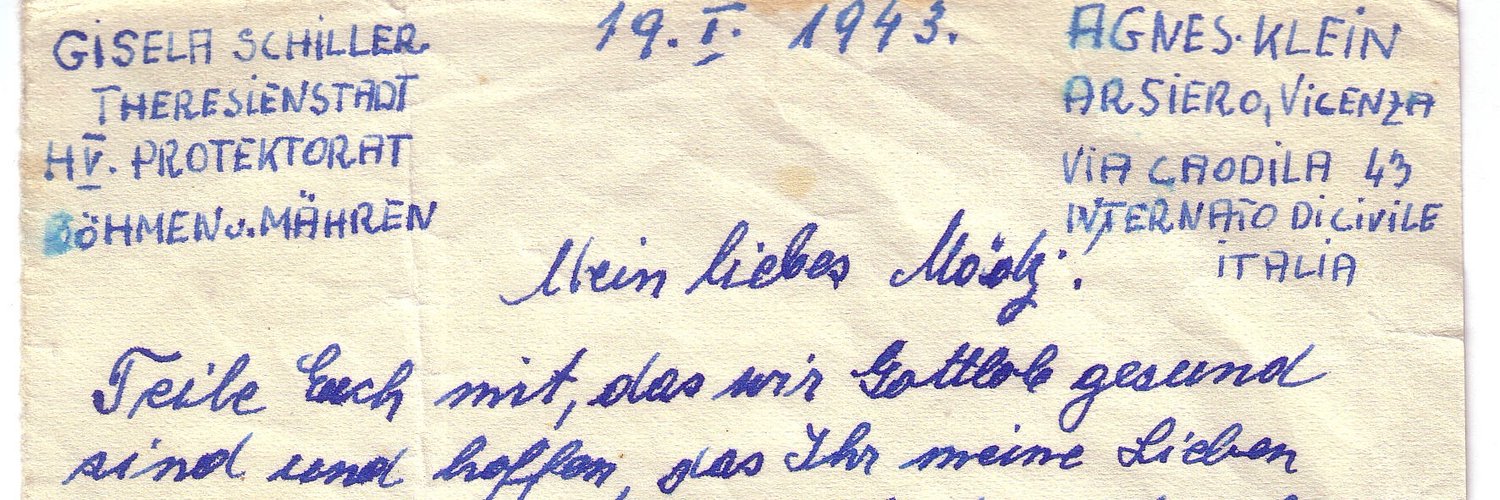 GISELA SCHILLER
THERESIENSTADT
H V. PROTEKTORAT
BÖHMEN u. MÄHREN
19. I. 1943.
AGNES KLEIN
ARSIERO, VICENZA
VIA CAODILA 43
INTERNATO DI CIVILE
ITALIA
Mein liebes !
Teile Euch mit, das wir Gottlob gesund
sind und hoffen, das Ihr meine Lieben